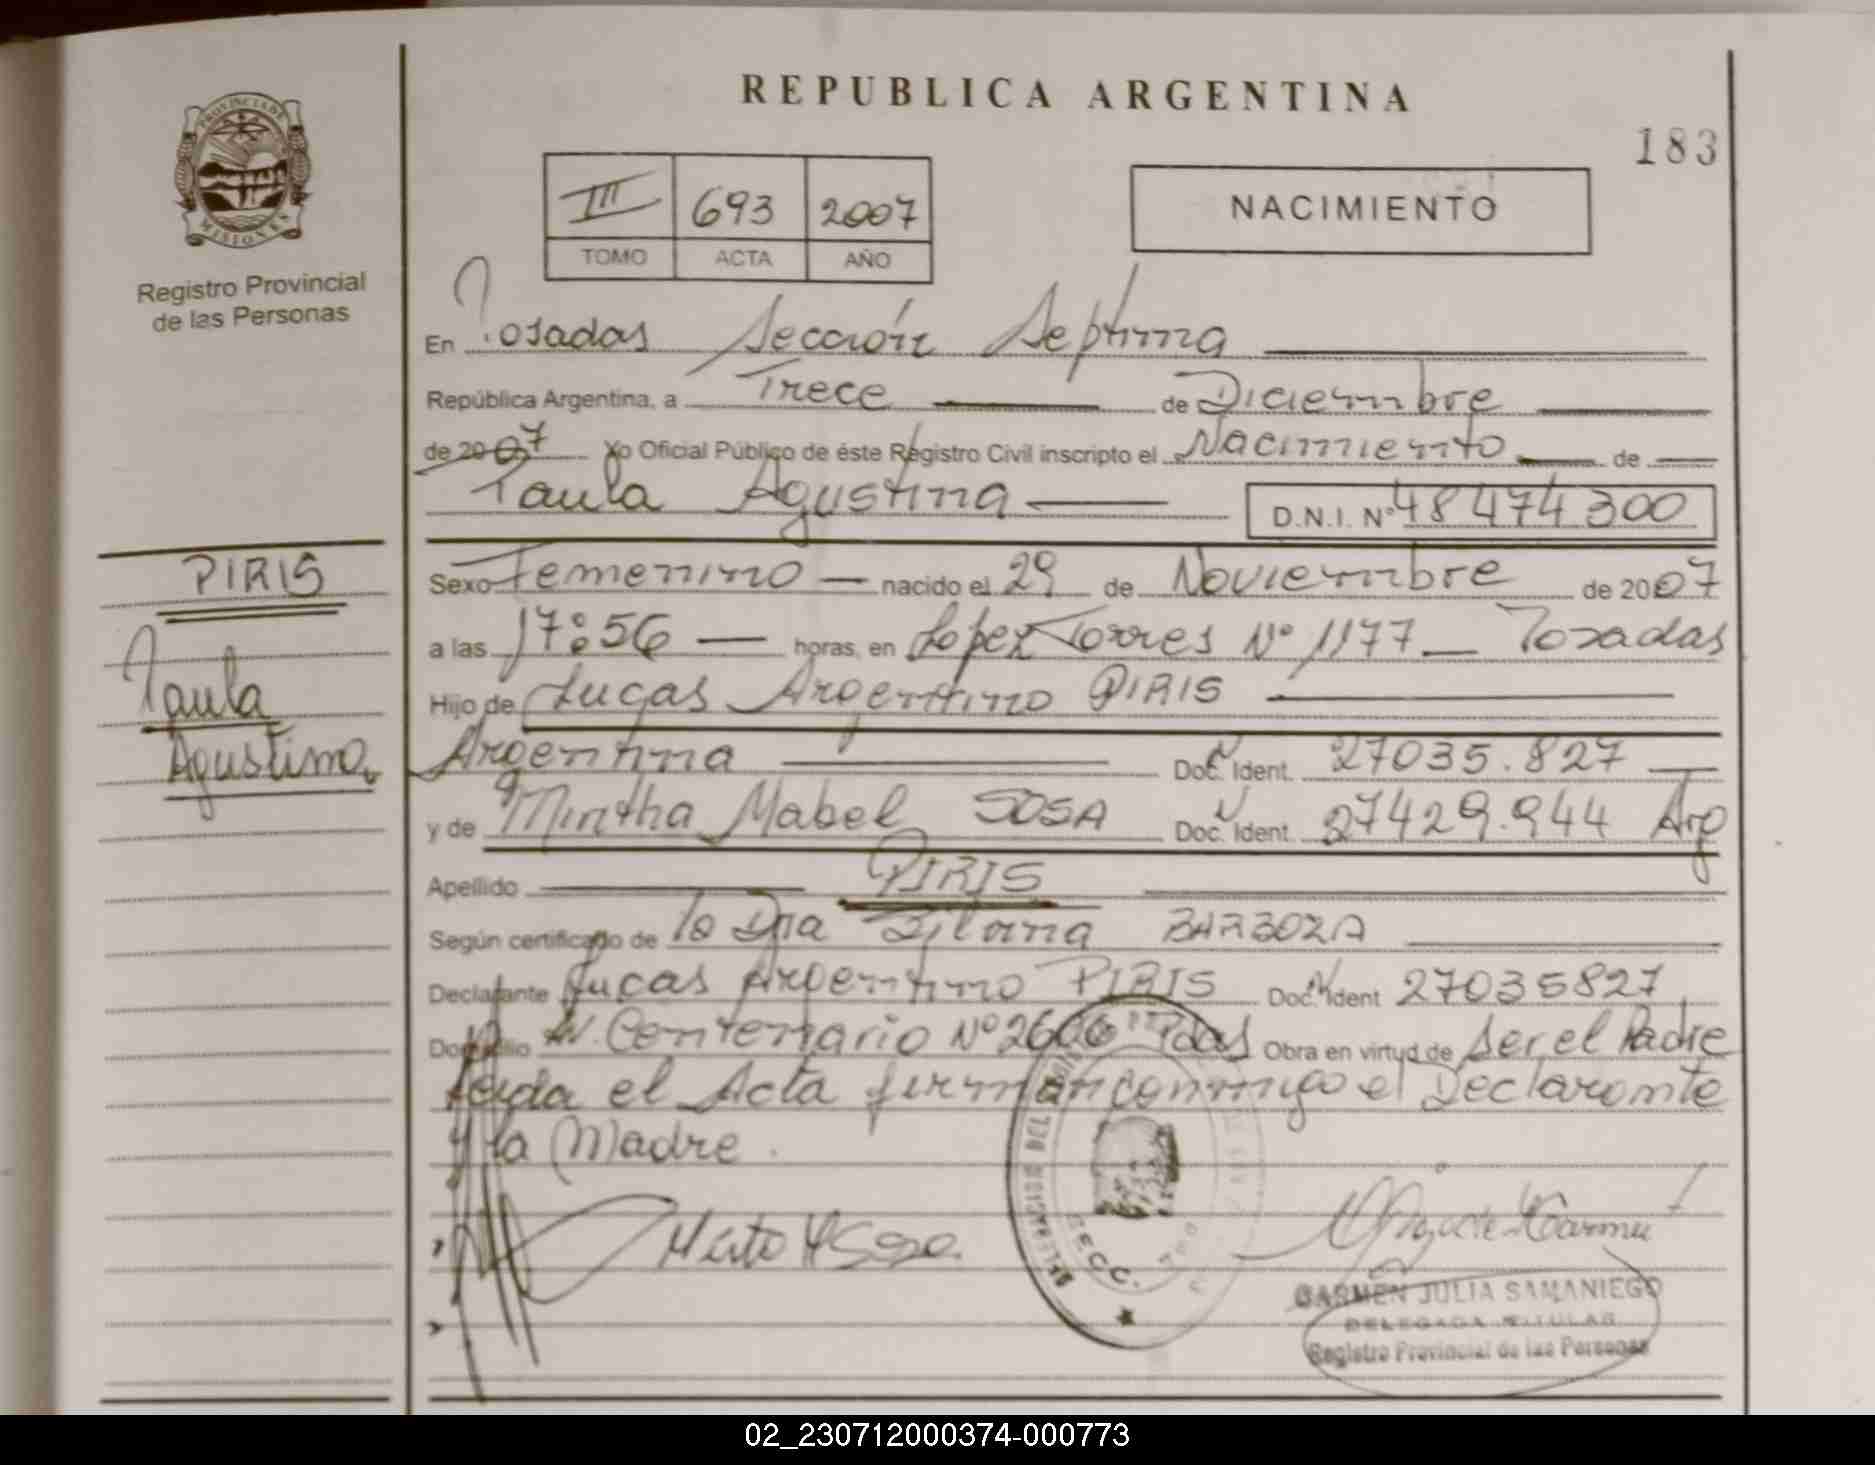 PROVINCIA DE
MISIONES
Registro Provincial
de las Personas
REPUBLICA ARGENTINA
183
III 693 2007
TOMO ACTA AÑO
NACIMIENTO
En Posadas Sección Septima
República Argentina, a Trece de Diciembre
de 2007 Yo Oficial Público de éste Registro Civil inscripto el Nacimiento de
Paula Agustina D.N.I. Nº 48474300
PIRIS
Paula
Agustina
Sexo Femenino nacido el 29 de Noviembre de 2007
a las 17:56 horas, en Lopez Torres Nº 1177 Posadas
Hijo de Lucas Argentino PIRIS
Argentina Doc. Ident. 27035.827
y de Mirtha Mabel SOSA Doc. Ident. 27429.944 Arg
Apellido PIRIS
Según certificado de la Dra Silvina BARBOZA
Declarante Lucas Argentino PIRIS Doc. Ident 27035827
Domicilio Av. Centenario Nº 2606 Pdas Obra en virtud de Ser el Padre
Leida el Acta firman conmigo el Declarante
y la Madre.
SECC.
CARMEN JULIA SAMANIEGO
DELEGADA TITULAR
Registro Provincial de las Personas
02_230712000374-000773